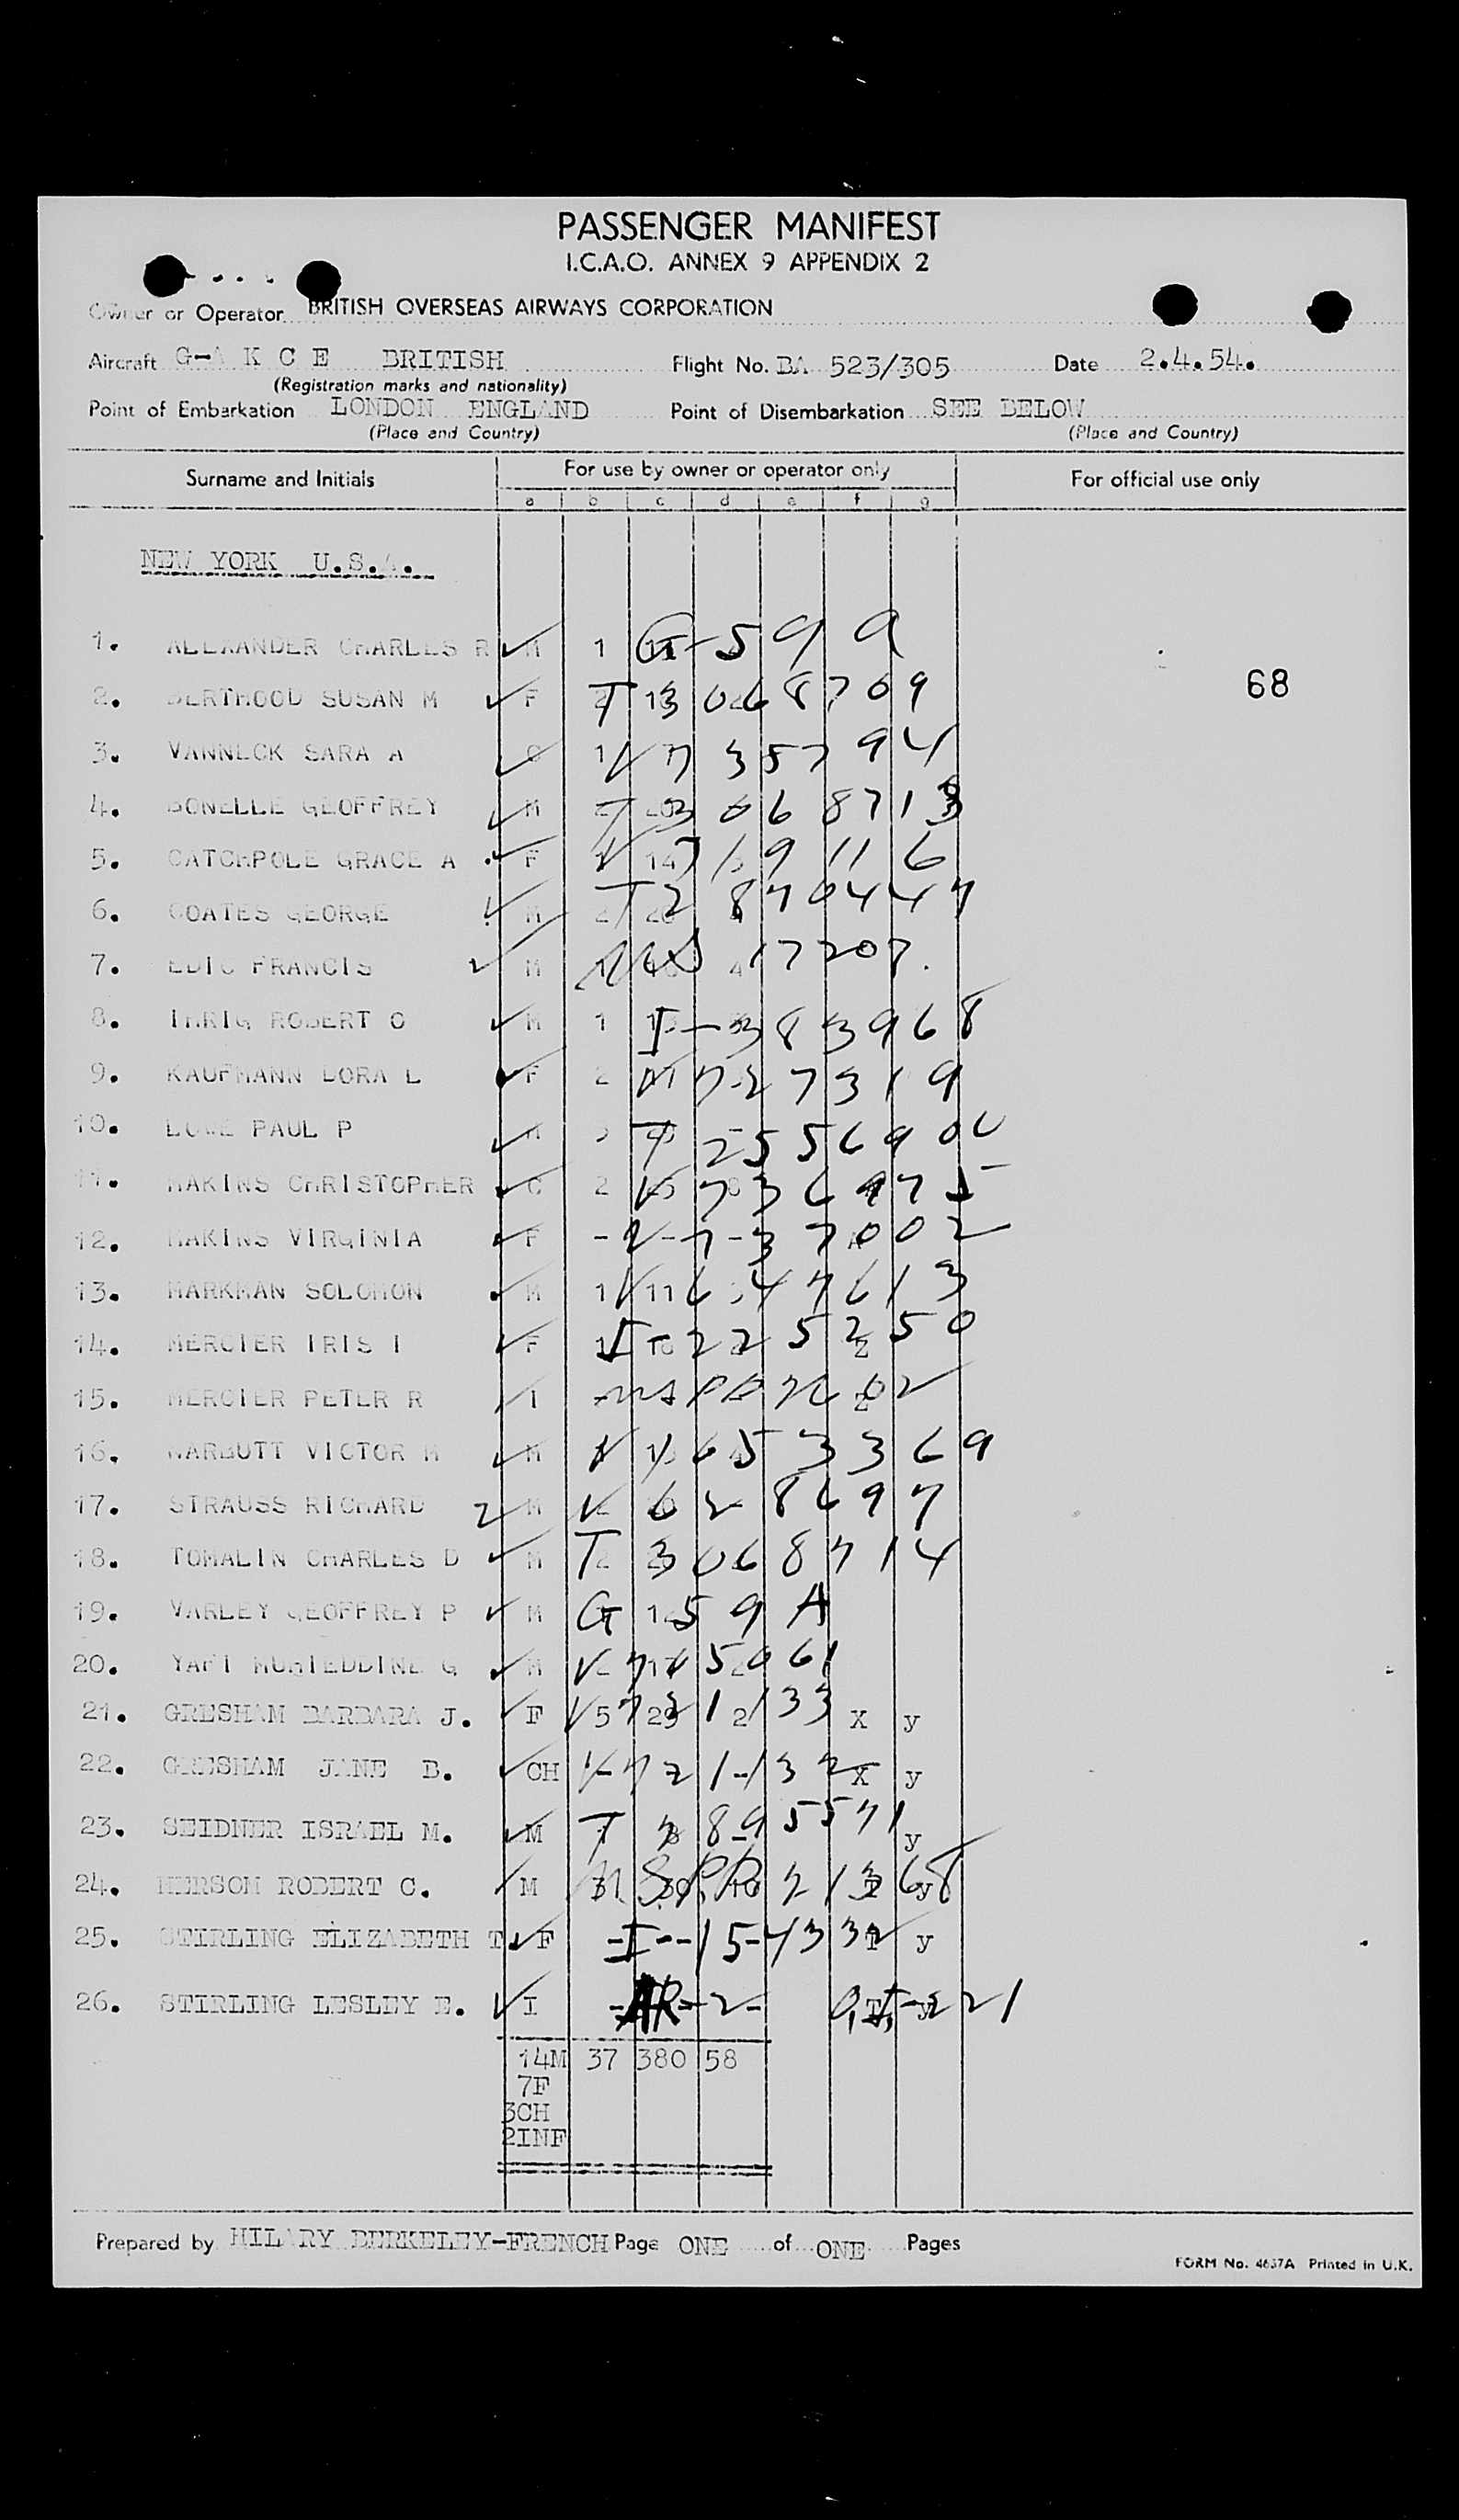 PASSENGER MANIFEST
I.C.A.O. ANNEX 9 APPENDIX 2
Owner or Operator BRITISH OVERSEAS AIRWAYS CORPORATION
Aircraft G-A K C E BRITISH Flight No. BA 523/305 Date 2.4.54.
(Registration marks and nationality)
Point of Embarkation LONDON ENGLAND Point of Disembarkation SEE BELOW
(Place and Country) (Place and Country)
Surname and Initials For use by owner or operator only For official use only
a b c d e f g
NEW YORK U.S.A.
1. ALEXANDER CHARLES R M 1 G-59A
2. BERTHOUD SUSAN M F T 3068709 68
3. VANNECK SARA A C 1 V 735794
4. BONELLE GEOFFREY M T 3068713
5. CATCHPOLE GRACE A F V 719116
6. COATES GEORGE M T2 870447
7. EDIC FRANCIS M 17207.
8. IHRIG ROBERT O M 1 I-383968
9. KAUFMANN LORA L F 2 V 727319
10. LOWE PAUL P M T 2556900
11. MAKINS CHRISTOPHER C 2 V 736975
12. MAKINS VIRGINIA F - V-7-37002
13. MARKMAN SOLOMON M 1 V 11 647613
14. MERCIER IRIS I F I 225250
15. MERCIER PETER R I
16. WARBUTT VICTOR M M V 653369
17. STRAUSS RICHARD M V 628697
18. TOMALIN CHARLES D M T 3068714
19. VARLEY GEOFFREY P M G 59A
20. YAFI MUHIEDDINE G M V 7
21. GRESHAM BARBARA J. F V 5 721133 X y
22. GRESHAM JANE B. CH V-721-132 X y
23. SEIDNER ISRAEL M. M T 895571 y
24. HERSOM ROBERT C. M 31 30 10 21368 y
25. STIRLING ELIZABETH T. F -I--15-4332 y
26. STIRLING LESLEY E. I -AR-2-
14M 37 380 58
7F
3CH
2INF
Prepared by HILARY BERKELEY-FRENCH Page ONE of ONE Pages
FORM No. 4637A Printed in U.K.